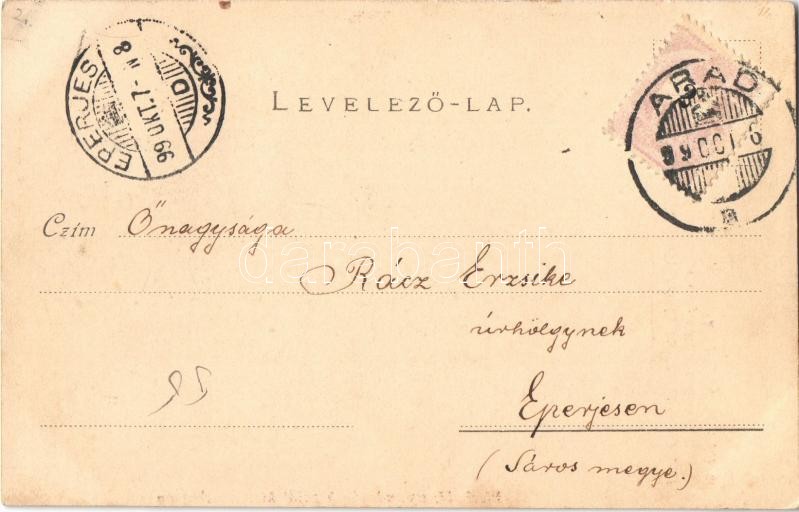 EPERJES
99 OKT. 7 - N 8
D
LEVELEZŐ-LAP.
ARAD
99 OCT 6
Czím Őnagysága
Rácz Erzsike
úrhölgynek
Eperjesen
(Sáros megye.)
darabanth